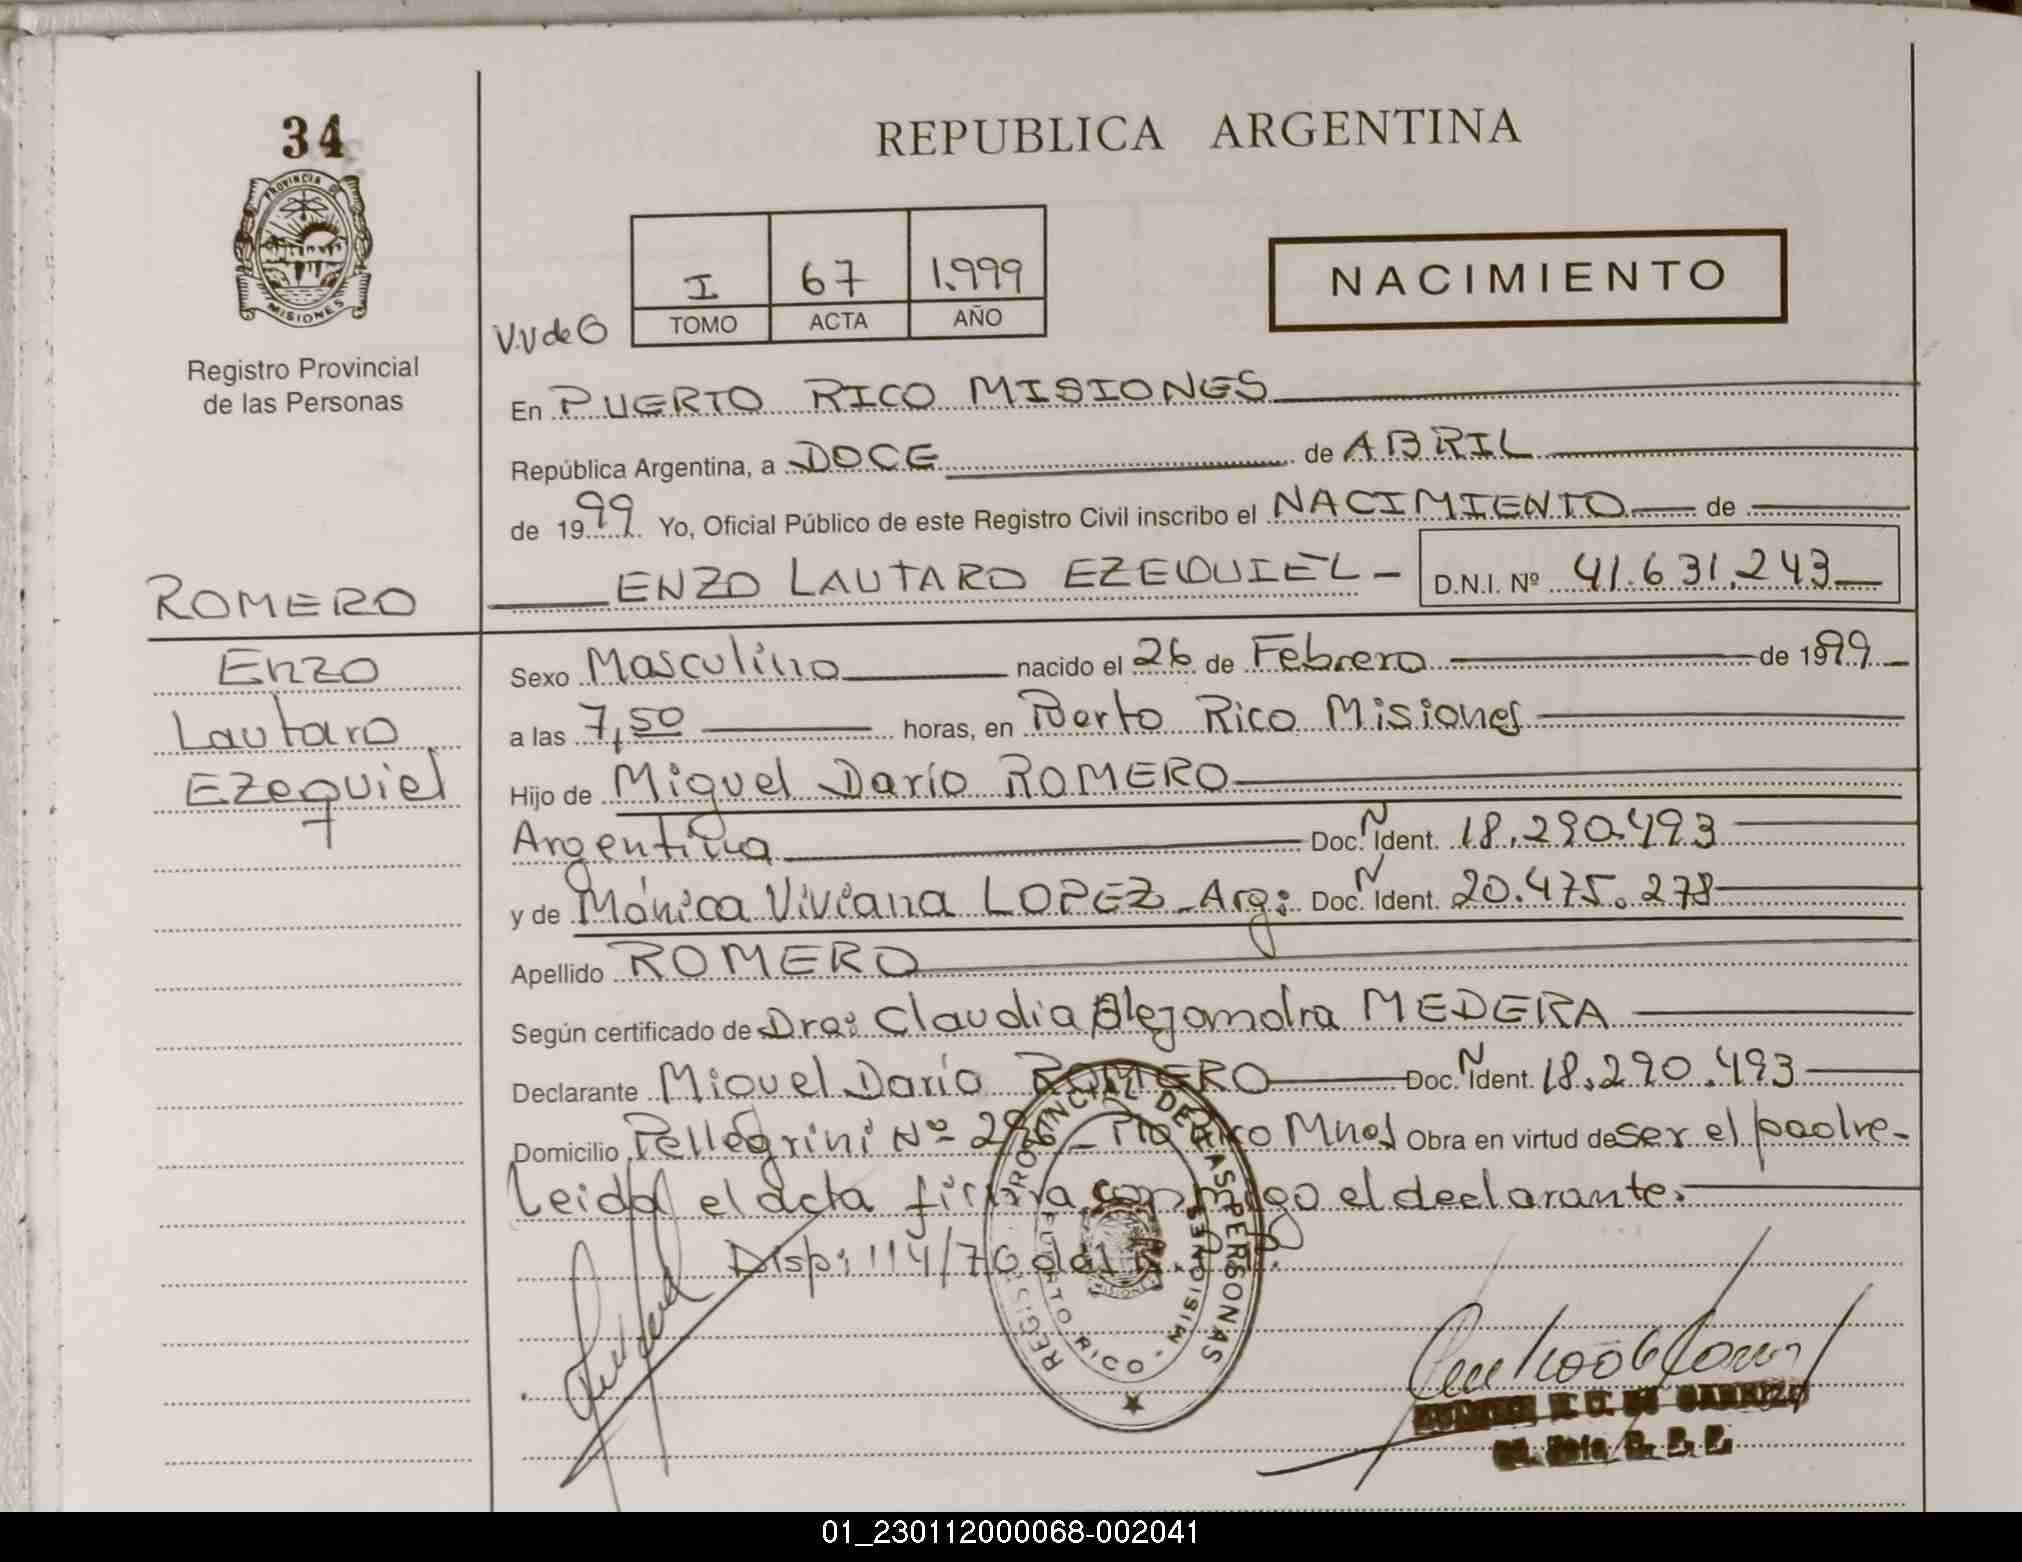 34
PROVINCIA DE
MISIONES
Registro Provincial
de las Personas
REPUBLICA ARGENTINA
I 67 1.999
TOMO ACTA AÑO
V.V de G
NACIMIENTO
En PUERTO RICO MISIONES
República Argentina, a DOCE de ABRIL
de 1999 Yo, Oficial Público de este Registro Civil inscribo el NACIMIENTO de
ENZO LAUTARO EZEQUIEL - D.N.I. Nº 41.631.243
ROMERO
Enzo
Lautaro
Ezequiel
Sexo Masculino nacido el 26 de Febrero de 1999
a las 7,50 horas, en Puerto Rico Misiones
Hijo de Miguel Darío ROMERO
Argentina Doc. N Ident. 18.290.493
y de Mónica Viviana LOPEZ - Arg: Doc. N Ident. 20.475.278
Apellido ROMERO
Según certificado de Dra: Claudia Alejandra MEDERA
Declarante Miguel Darío ROMERO Doc. N Ident. 18.290.493
Domicilio Pellegrini Nº 296 - Pto Rico Mnes Obra en virtud de ser el padre-
Leida el acta firma conmigo el declarante.
Disp: 114/70 del
REGIS. PROVINCIAL DE LAS PERSONAS
PUERTO RICO - MISIONES
DE CARRIZO
01_230112000068-002041